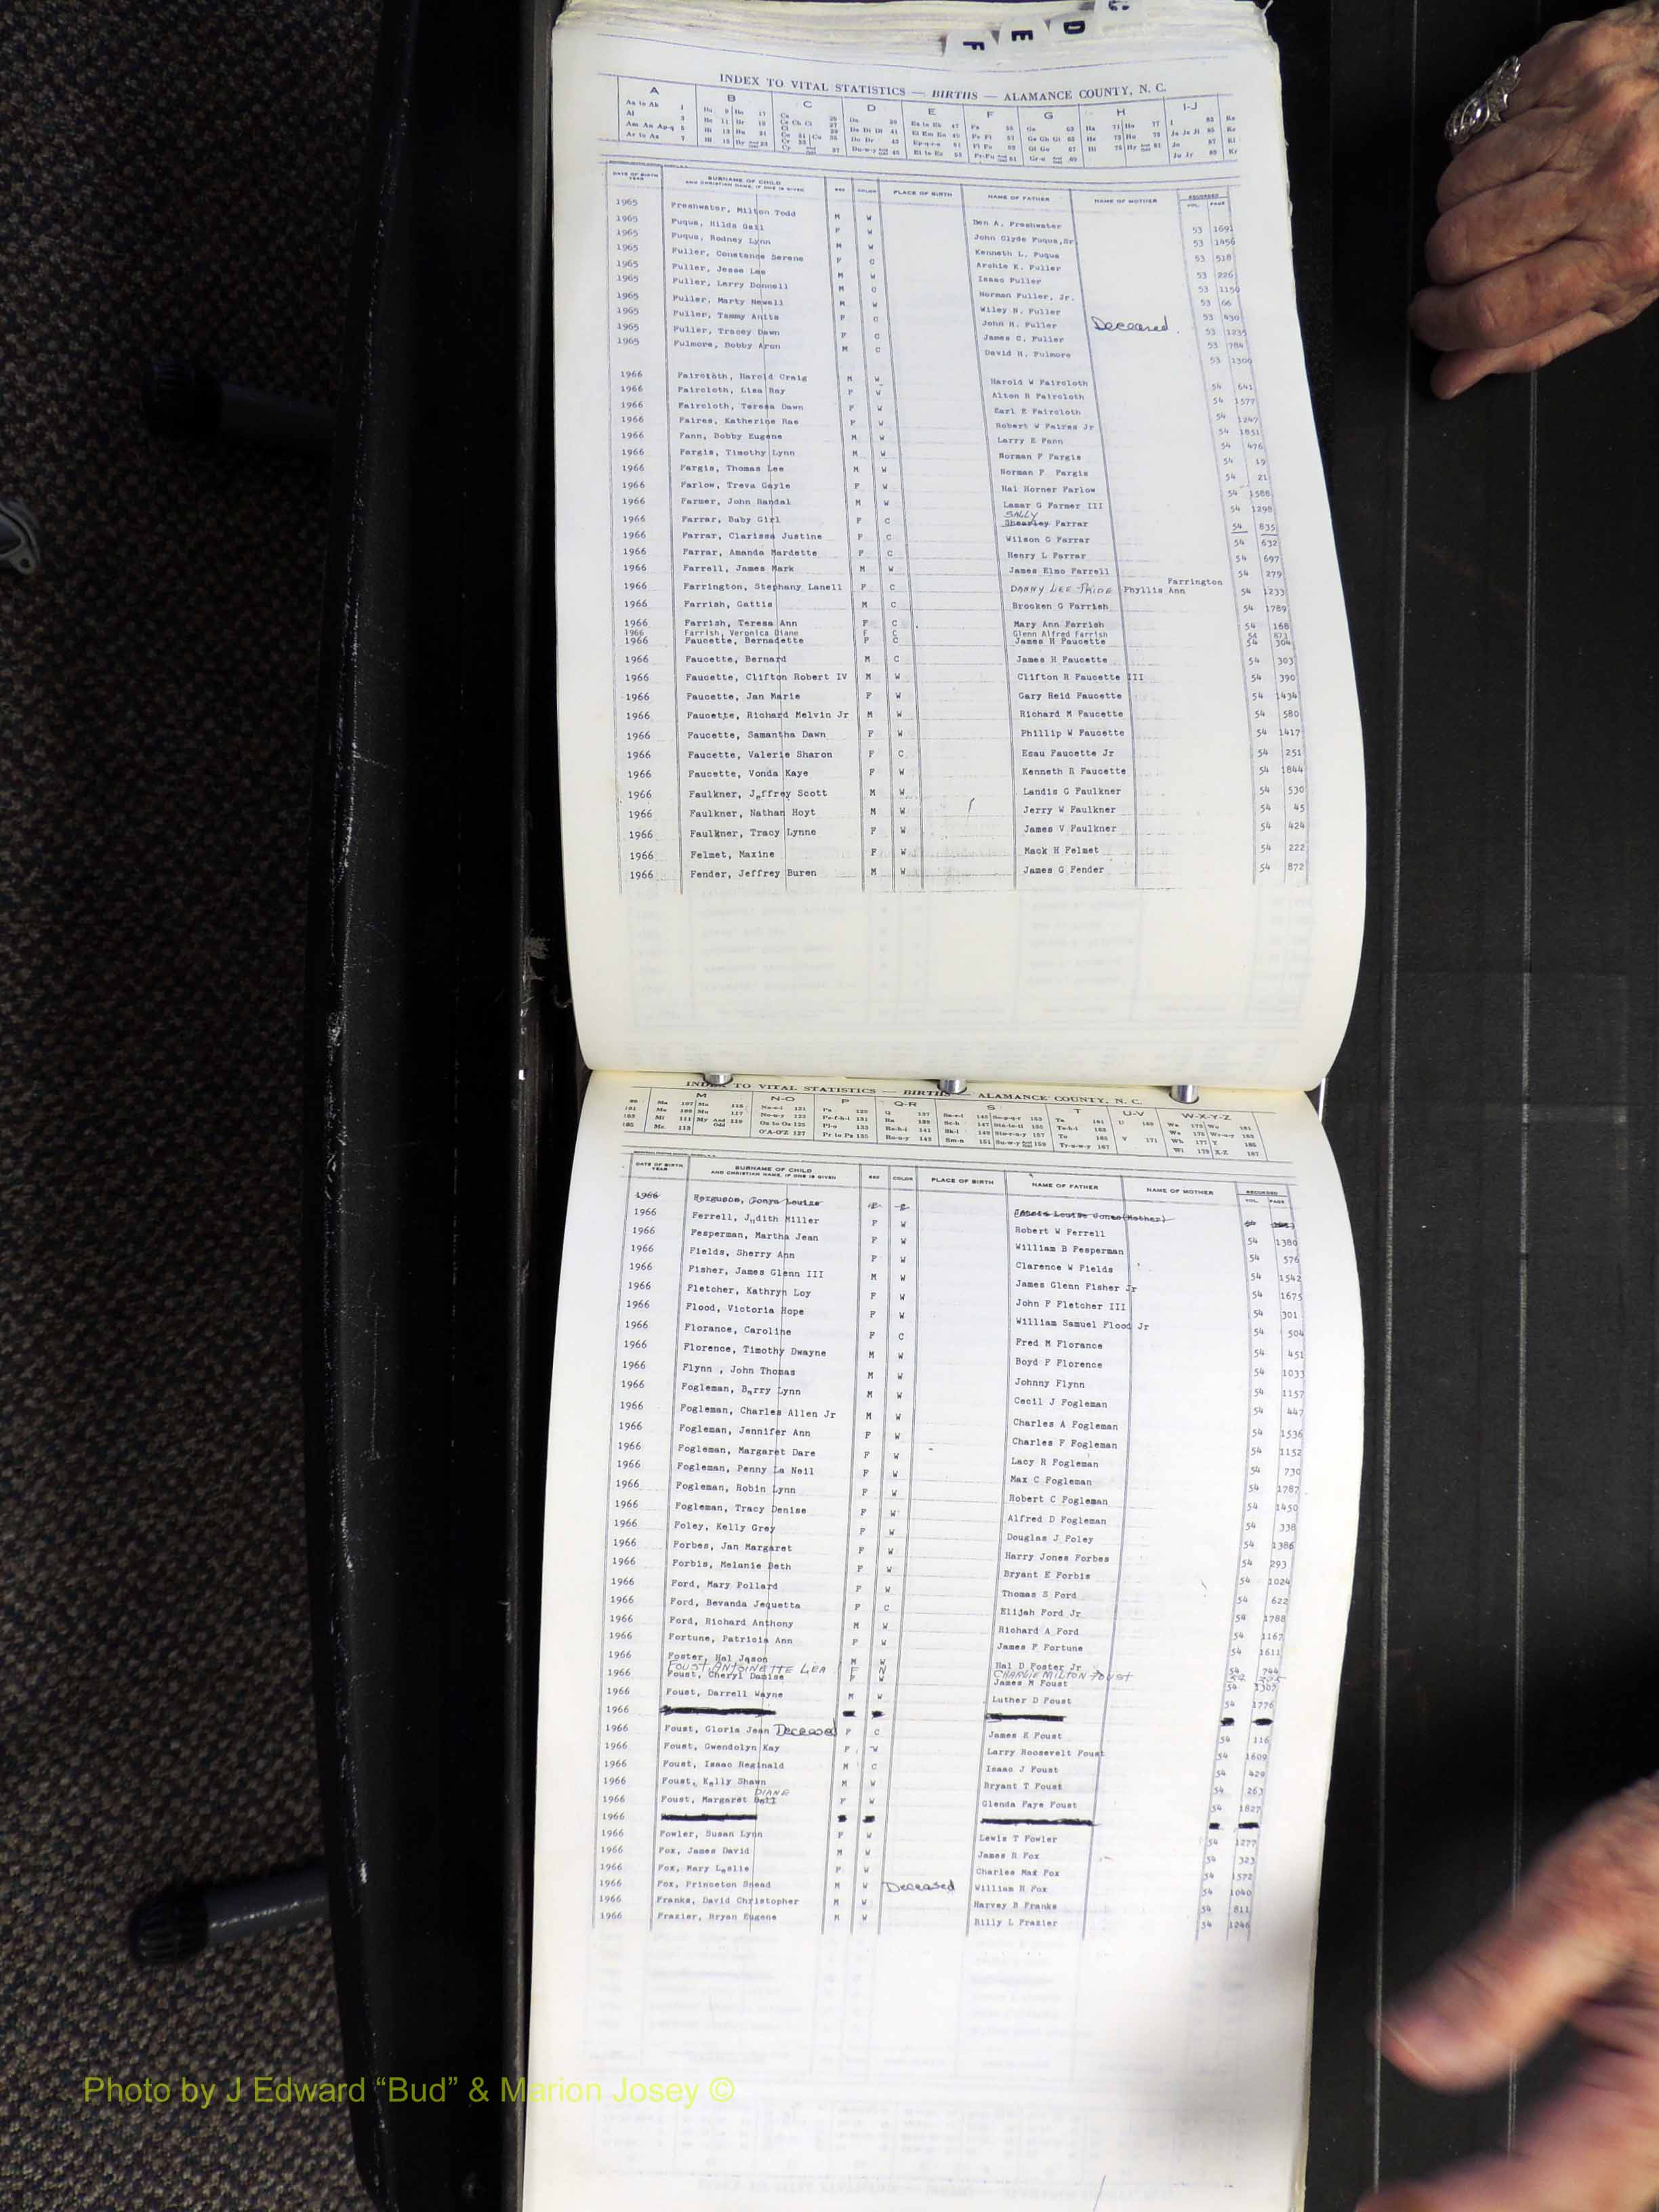 C
D
E
F
INDEX TO VITAL STATISTICS — BIRTHS — ALAMANCE COUNTY, N. C.
A B C D E F G H I-J
DATE OF BIRTH YEAR SURNAME OF CHILD AND CHRISTIAN NAME, IF ONE IS GIVEN SEX COLOR PLACE OF BIRTH NAME OF FATHER NAME OF MOTHER RECORDED VOL. PAGE
1965 Freshwater, Milton Todd M W Ben A. Freshwater 53
1965 Fuqua, Hilda Gail F W John Clyde Fuqua, Sr. 53 1456
1965 Fuqua, Rodney Lynn M W Kenneth L. Fuqua 53 518
1965 Fuller, Constance Serene F C Archie K. Fuller 53 226
1965 Fuller, Jesse Lee M W Isaac Fuller 53 1150
1965 Fuller, Larry Donnell M C Norman Fuller, Jr. 53 66
1965 Fuller, Marty Newell M W Wiley N. Fuller 53 430
1965 Fuller, Tammy Anita F C John H. Fuller Deceased 53 1235
1965 Fuller, Tracey Dawn F C James C. Fuller 53 784
1965 Fulmore, Bobby Aron M C David H. Fulmore 53 1300
1966 Faircloth, Harold Craig M W Harold W Faircloth 54 641
1966 Faircloth, Lisa Ray F W Alton R Faircloth 54 1577
1966 Faircloth, Teresa Dawn F W Earl E Faircloth 54 1247
1966 Faires, Katherine Rae F W Robert W Faires Jr 54 1851
1966 Fann, Bobby Eugene M W Larry E Fann 54 476
1966 Fargis, Timothy Lynn M W Norman F Fargis 54 19
1966 Fargis, Thomas Lee M W Norman F Fargis 54 21
1966 Farlow, Treva Gayle F W Hal Horner Farlow 54 1588
1966 Farmer, John Randal M W Lamar G Farmer III 54 1298
SALLY
1966 Farrar, Baby Girl F C Shearley Farrar 54 835
1966 Farrar, Clarissa Justine F C Wilson G Farrar 54 632
1966 Farrar, Amanda Mardette F C Henry L Farrar 54 697
1966 Farrell, James Mark M W James Elmo Farrell 54 279
1966 Farrington, Stephany Lanell F C DANNY LEE Phyllis Ann Farrington 54 1233
1966 Farrish, Gattis M C Brooken G Farrish 54 1789
1966 Farrish, Teresa Ann F C Mary Ann Farrish 54 168
1966 Farrish, Veronica Diane F C Glenn Alfred Farrish 54 871
1966 Faucette, Bernadette F C James H Faucette 54 304
1966 Faucette, Bernard M C James H Faucette 54 303
1966 Faucette, Clifton Robert IV M W Clifton R Faucette III 54 390
1966 Faucette, Jan Marie F W Gary Reid Faucette 54 1434
1966 Faucette, Richard Melvin Jr M W Richard M Faucette 54 580
1966 Faucette, Samantha Dawn F W Phillip W Faucette 54 1417
1966 Faucette, Valerie Sharon F C Esau Faucette Jr 54 251
1966 Faucette, Vonda Kaye F W Kenneth R Faucette 54 1844
1966 Faulkner, Jeffrey Scott M W Landis G Faulkner 54 530
1966 Faulkner, Nathan Hoyt M W Jerry W Faulkner 54 45
1966 Faulkner, Tracy Lynne F W James V Faulkner 54 424
1966 Felmet, Maxine F W Mack H Felmet 54 222
1966 Fender, Jeffrey Buren M W James G Fender 54 872
INDEX TO VITAL STATISTICS — BIRTHS — ALAMANCE COUNTY, N. C.
M N-O P Q-R S T U-V W-X-Y-Z
DATE OF BIRTH YEAR SURNAME OF CHILD AND CHRISTIAN NAME, IF ONE IS GIVEN SEX COLOR PLACE OF BIRTH NAME OF FATHER NAME OF MOTHER RECORDED VOL. PAGE
1966 Ferguson, Tonya Louise Louise Jones(Mother) 54
1966 Ferrell, Judith Miller F W Robert W Ferrell 54 1380
1966 Fesperman, Martha Jean F W William B Fesperman 54 576
1966 Fields, Sherry Ann F W Clarence W Fields 54 1542
1966 Fisher, James Glenn III M W James Glenn Fisher Jr 54 1675
1966 Fletcher, Kathryn Loy F W John F Fletcher III 54 301
1966 Flood, Victoria Hope F W William Samuel Flood Jr 54 504
1966 Florance, Caroline F C Fred M Florance 54 451
1966 Florence, Timothy Dwayne M W Boyd F Florence 54 1033
1966 Flynn , John Thomas M W Johnny Flynn 54 1157
1966 Fogleman, Barry Lynn M W Cecil J Fogleman 54 447
1966 Fogleman, Charles Allen Jr M W Charles A Fogleman 54 1536
1966 Fogleman, Jennifer Ann F W Charles F Fogleman 54 1152
1966 Fogleman, Margaret Dare F W Lacy R Fogleman 54 730
1966 Fogleman, Penny La Neil F W Max C Fogleman 54 1787
1966 Fogleman, Robin Lynn F W Robert C Fogleman 54 1450
1966 Fogleman, Tracy Denise F W Alfred D Fogleman 54 338
1966 Foley, Kelly Grey F W Douglas J Foley 54 1386
1966 Forbes, Jan Margaret F W Harry Jones Forbes 54 293
1966 Forbis, Melanie Beth F W Bryant E Forbis 54 1024
1966 Ford, Mary Pollard F W Thomas S Ford 54 622
1966 Ford, Bevanda Jequetta F C Elijah Ford Jr 54 1788
1966 Ford, Richard Anthony M W Richard A Ford 54 1167
1966 Fortune, Patricia Ann F W James F Fortune 54 1611
1966 Foster, Hal Jason M W Hal D Foster Jr 54 744
FOUST ANTOINETTE LIEA F N CHARLIE MILTON FOUST
1966 Foust, Cheryl Danise F W James M Foust 54 1307
1966 Foust, Darrell Wayne M W Luther D Foust 54 1776
1966
1966 Foust, Gloria Jean Deceased F C James E Foust 54 116
1966 Foust, Gwendolyn Kay F W Larry Roosevelt Foust 54 1609
1966 Foust, Isaac Reginald M C Isaac J Foust 54 429
1966 Foust, Kelly Shawn M W Bryant T Foust 54 263
DIANE
1966 Foust, Margaret F W Glenda Faye Foust 54 1827
1966
1966 Fowler, Susan Lynn F W Lewis T Fowler 54 1277
1966 Fox, James David M W James R Fox 54 323
1966 Fox, Mary Leslie F W Charles Max Fox 54 1572
1966 Fox, Princeton Snead M W Deceased William H Fox 54 1040
1966 Franks, David Christopher M W Harvey B Franks 54 811
1966 Frazier, Bryan Eugene M W Billy L Frazier 54 1246
Photo by J Edward “Bud” & Marion Josey ©